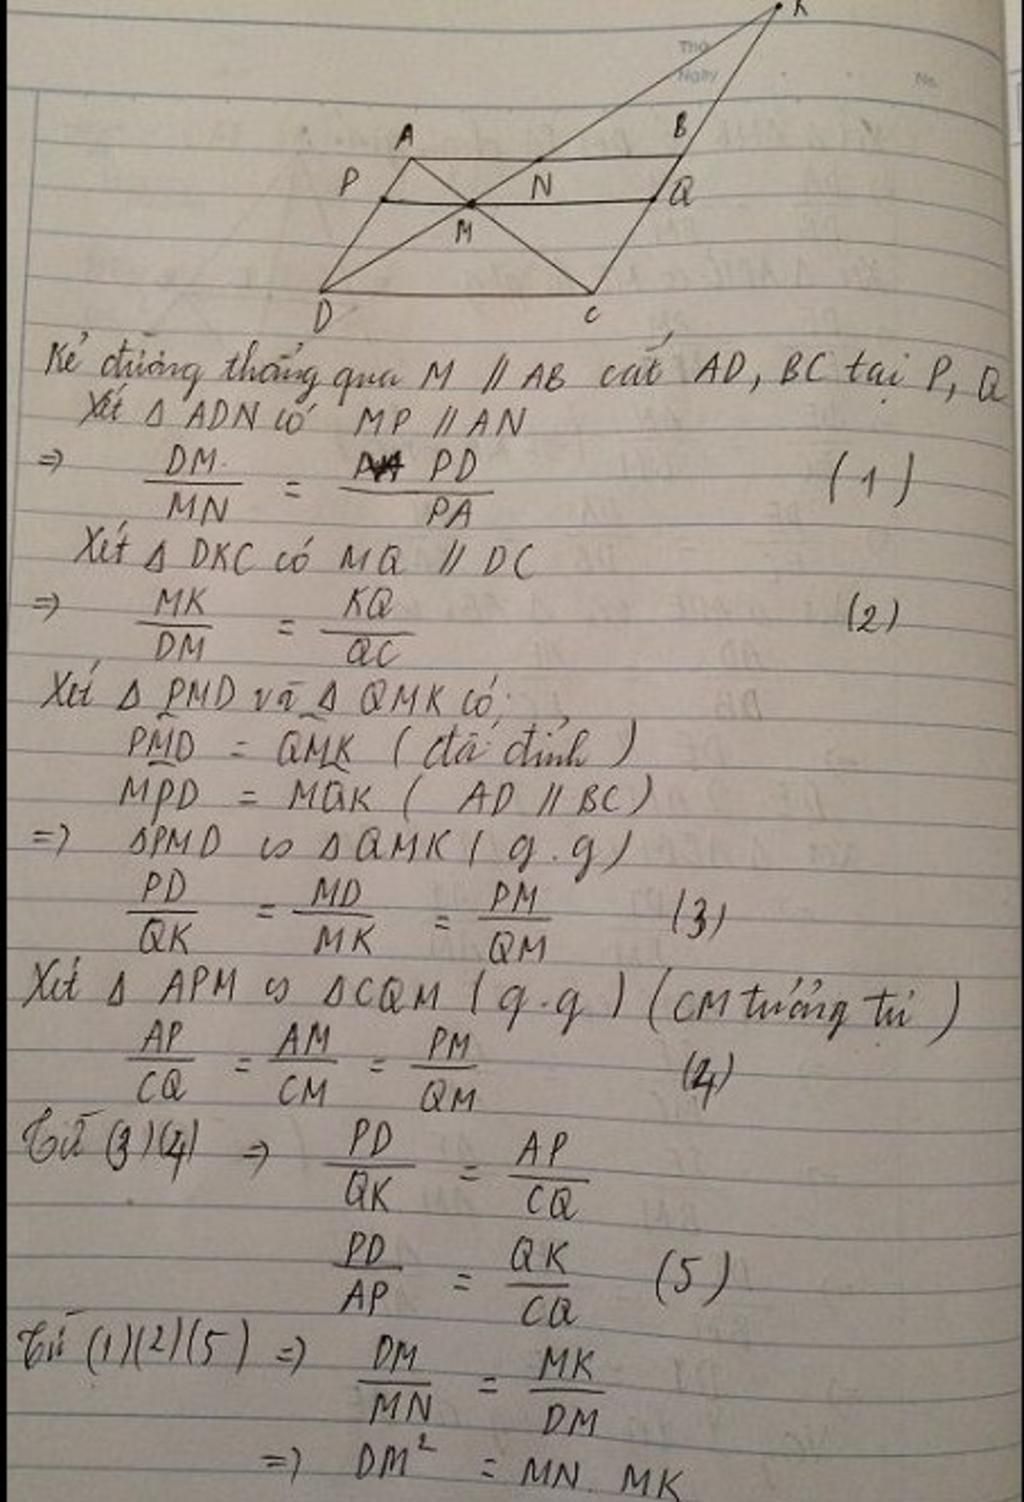 K
Thứ
Ngày
No.
A
B
P
N
Q
M
D
C
Kẻ đường thẳng qua M // AB cắt AD, BC tại P, Q
Xét Δ ADN có MP // AN
=> DM/MN = PD/PA (1)
Xét Δ DKC có MQ // DC
=> MK/DM = KQ/QC (2)
Xét Δ PMD và Δ QMK có:
PMD = QMK (đối đỉnh)
MPD = MQK ( AD // BC)
=> ΔPMD ∽ ΔQMK ( g.g)
PD/QK = MD/MK = PM/QM (3)
Xét Δ APM ∽ ΔCQM ( g.g ) (CM tương tự)
AP/CQ = AM/CM = PM/QM (4)
Từ (3)(4) => PD/QK = AP/CQ
PD/AP = QK/CQ (5)
Từ (1)(2)(5) => DM/MN = MK/DM
=> DM² = MN. MK